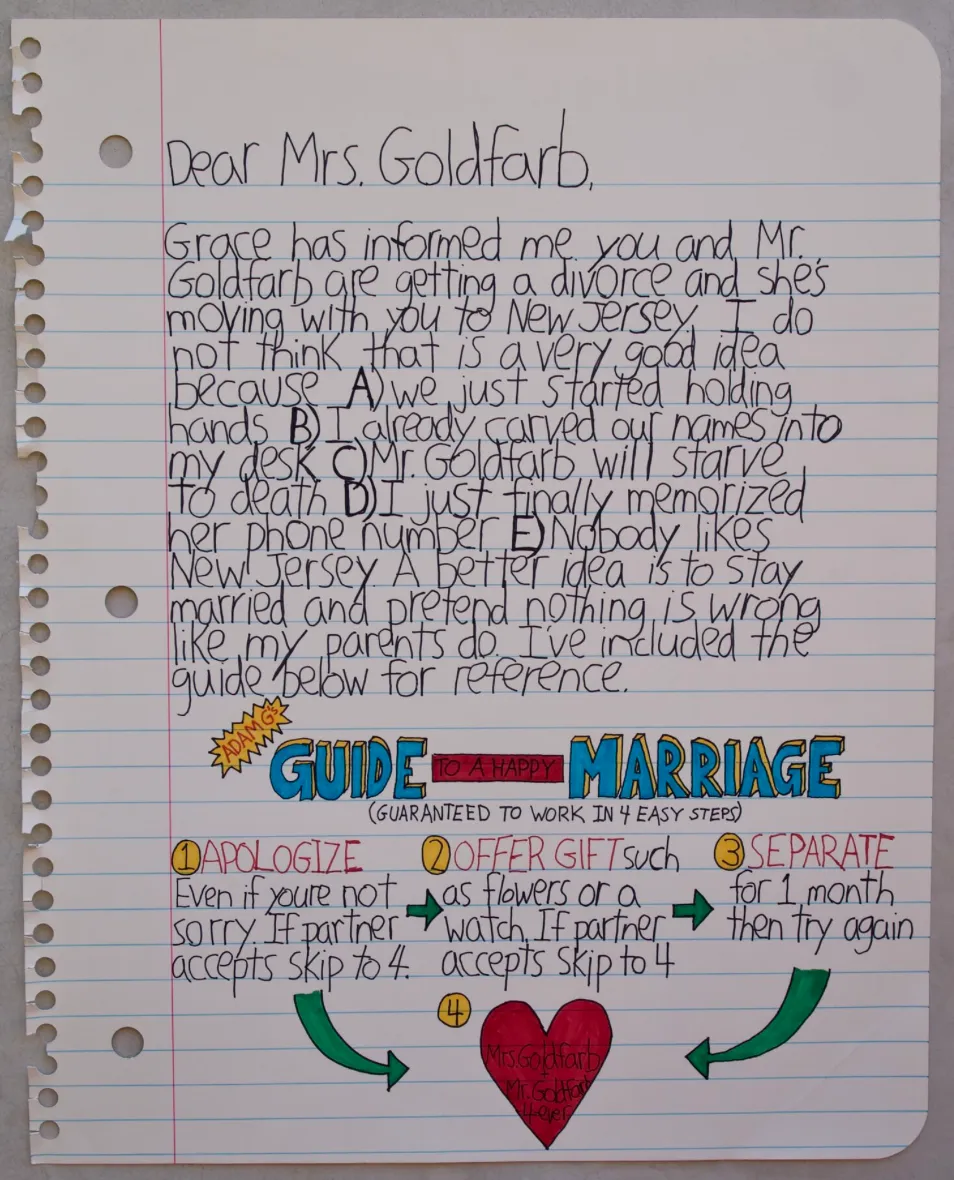 Dear Mrs. Goldfarb,
Grace has informed me you and Mr.
Goldfarb are getting a divorce and she's
moving with you to New Jersey. I do
not think that is a very good idea
because A) we just started holding
hands B) I already carved our names into
my desk C) Mr. Goldfarb will starve
to death D) I just finally memorized
her phone number E) Nobody likes
New Jersey A better idea is to stay
married and pretend nothing is wrong
like my parents do. I've included the
guide below for reference.
ADAM G's
GUIDE TO A HAPPY MARRIAGE
(GUARANTEED TO WORK IN 4 EASY STEPS)
1 APOLOGIZE
Even if youre not
sorry. If partner
accepts skip to 4.
2 OFFER GIFT such
as flowers or a
watch. If partner
accepts skip to 4
3 SEPARATE
for 1 month
then try again
4
Mrs. Goldfarb
+
Mr. Goldfarb
4-ever